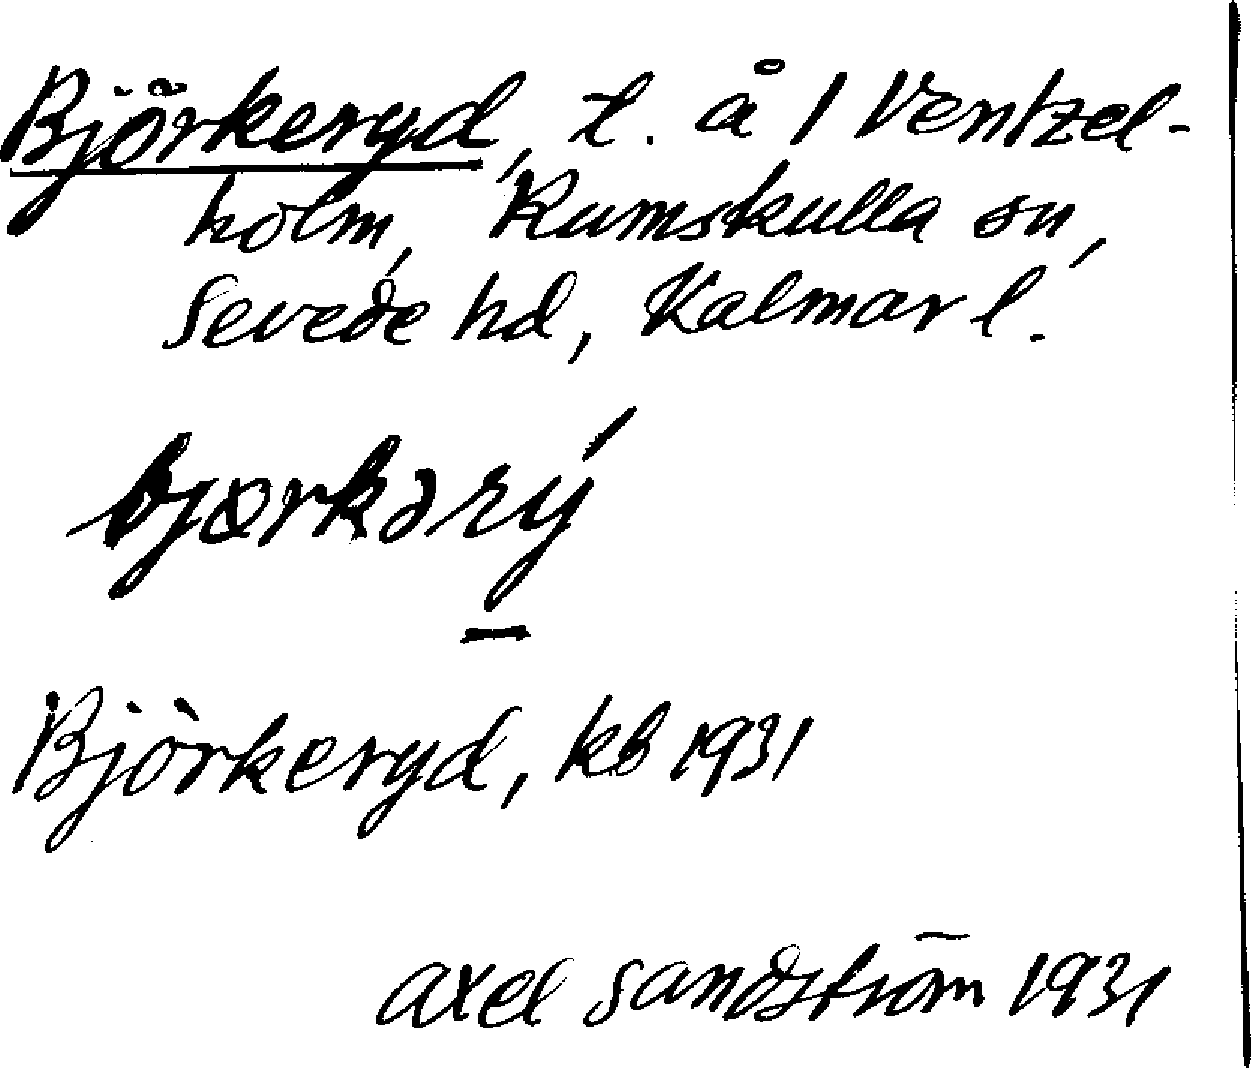 Björkeryd, t. å 1 Ventzel-
holm, Rumskulla sn,
Sevede hd, Kalmar l.
bjørkərý
Björkeryd, kb 1931
Axel Sandström 1931